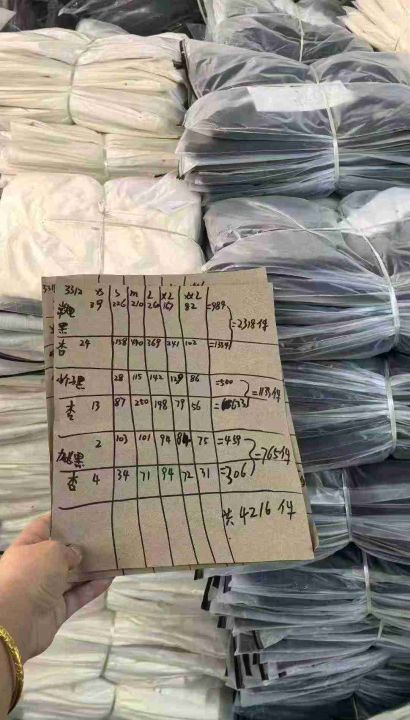 3312 XS S m L XL XXL
黑 29 226 210 260 167 82 =989
=2318件
杏 24 158 369 241 102
黑 28 115 142 129 86 =500
=1133件
杏 13 87 250 198 79 56 633
黑 2 103 101 94 84 75 =459
=765件
杏 4 34 71 94 72 31 =306
共4216件